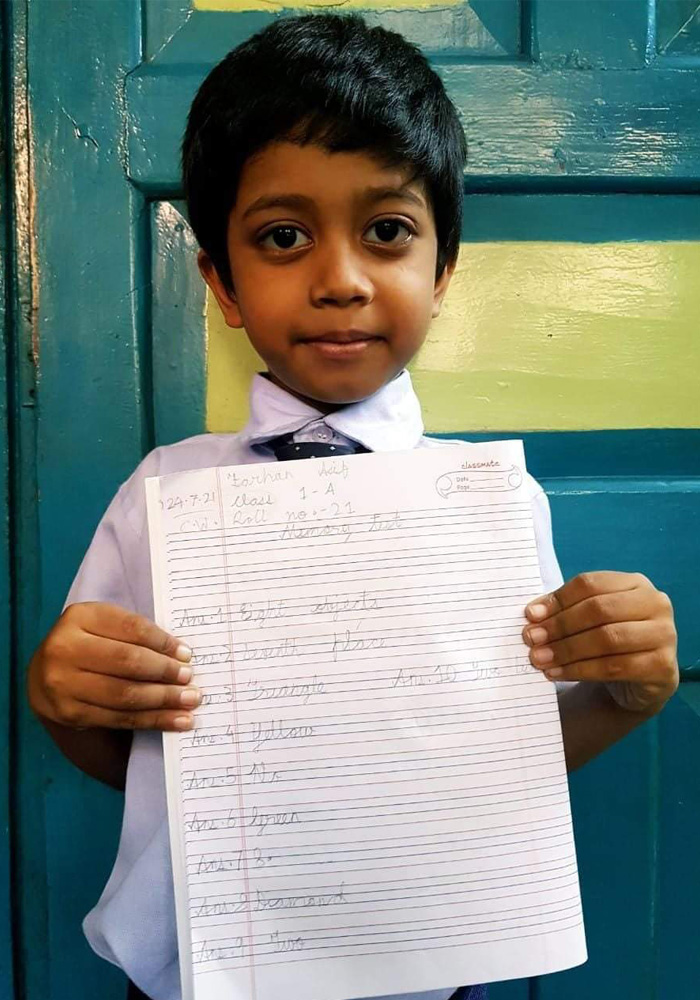 Farhan Asif
classmate
Date
Page
29.7.21 Class 1-A
C.W. Roll no:-21
Memory Test
Ans.1 Eight objects
Ans.2 Seventh place
Ans.3 Triangle Ans.10 Two
Ans.4 Yellow
Ans.5 No
Ans.6 Green
Ans.7 8.
Ans.8 Diamond
Ans.9 Two